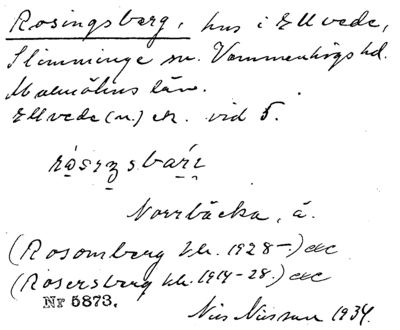 Rosingsberg, hus i Ellvede,
Slimminge sn. Vemmenhögs hd.
Malmöhus län.
Ellvede (n.) ek. vid 5.
Norrbäcka, å.
(Rosomberg kk. 1928-) etc
(Rosersberg kk. 1914-28.) etc
Nr 5873.
Nils Nilsson 1934.